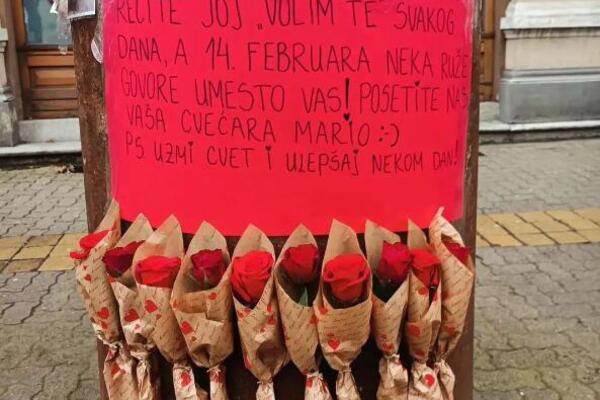 RECITE JOJ „VOLIM TE" SVAKOG
DANA, A 14. FEBRUARA NEKA RUŽE
GOVORE UMESTO VAS! POSETITE NAS
VAŠA CVEĆARA MARIO :-)
PS. UZMI CVET I ULEPŠAJ NEKOM DAN!